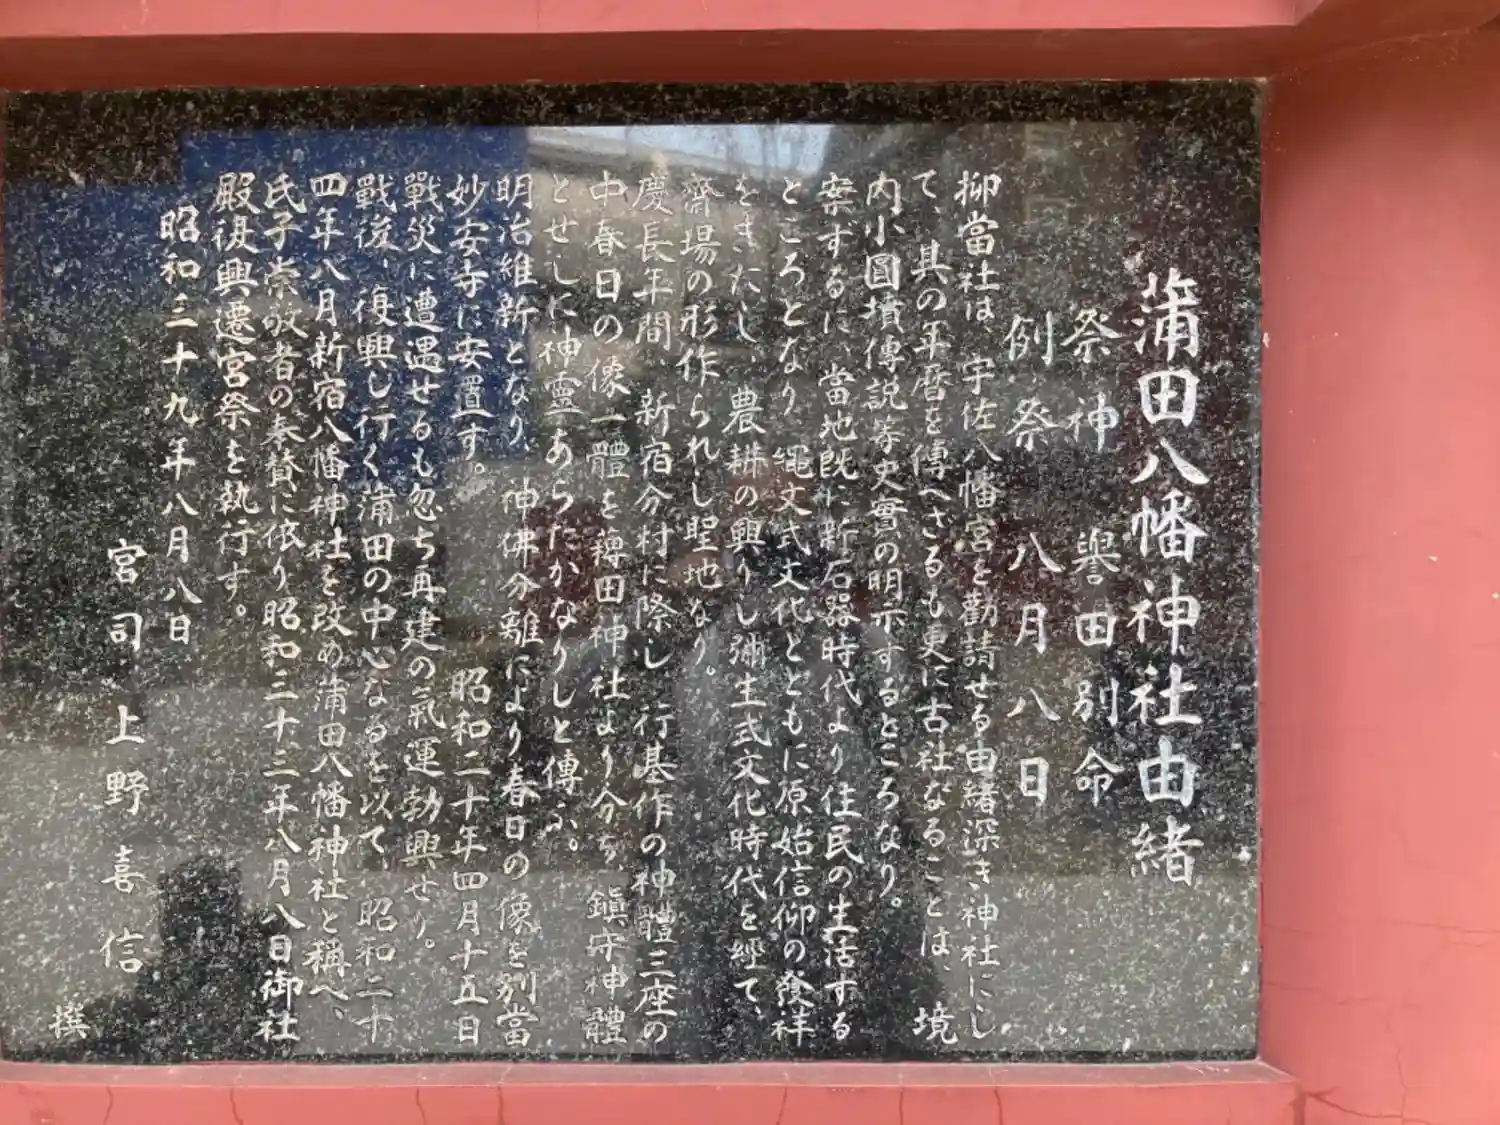 蒲田八幡神社由緒
祭神　譽田別命
例祭　八月八日
抑當社は、宇佐八幡宮を勸請せる由緒深き神社にし
て、其の年暦を傳へざるも更に古社なることは、境
内小圓墳傳説等史實の明示するところなり。
案ずるに、當地既に新石器時代より住民の生活する
ところとなり　縄文式文化とともに原始信仰の發祥
をきたし、農耕の興りし彌生式文化時代を經て、
齋場の形作られし聖地なり。
慶長年間　新宿分村に際し　行基作の神體三座の
中春日の像一體を薭田神社より分ち、鎭守神體
とせしに神靈あらたかなりしと傳ふ。
明治維新となり、神佛分離により春日の像を別當
妙安寺に安置す。　昭和二十年四月十五日
戰災に遭遇せるも忽ち再建の氣運勃興せり。
戰後、復興し行く蒲田の中心なるを以て、昭和二十
四年八月新宿八幡神社を改め蒲田八幡神社と稱へ、
氏子崇敬者の奉賛に依り昭和三十三年八月八日御社
殿復興遷宮祭を執行す。
昭和三十九年八月八日
宮司　上野喜信
撰